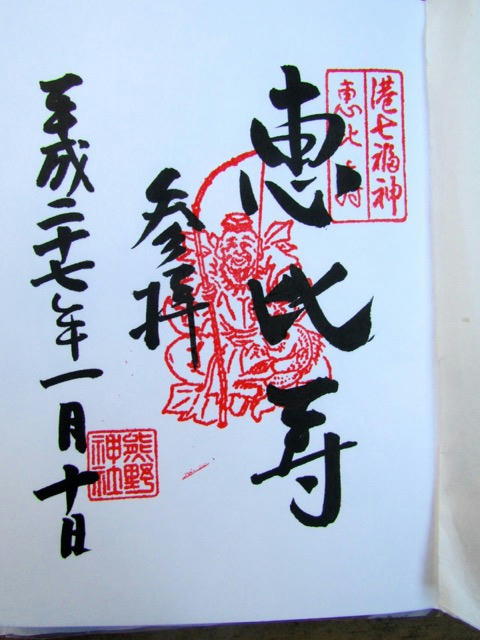 港七福神
恵比寿
恵比寿
参拝
熊野
神社
平成二十七年一月十日